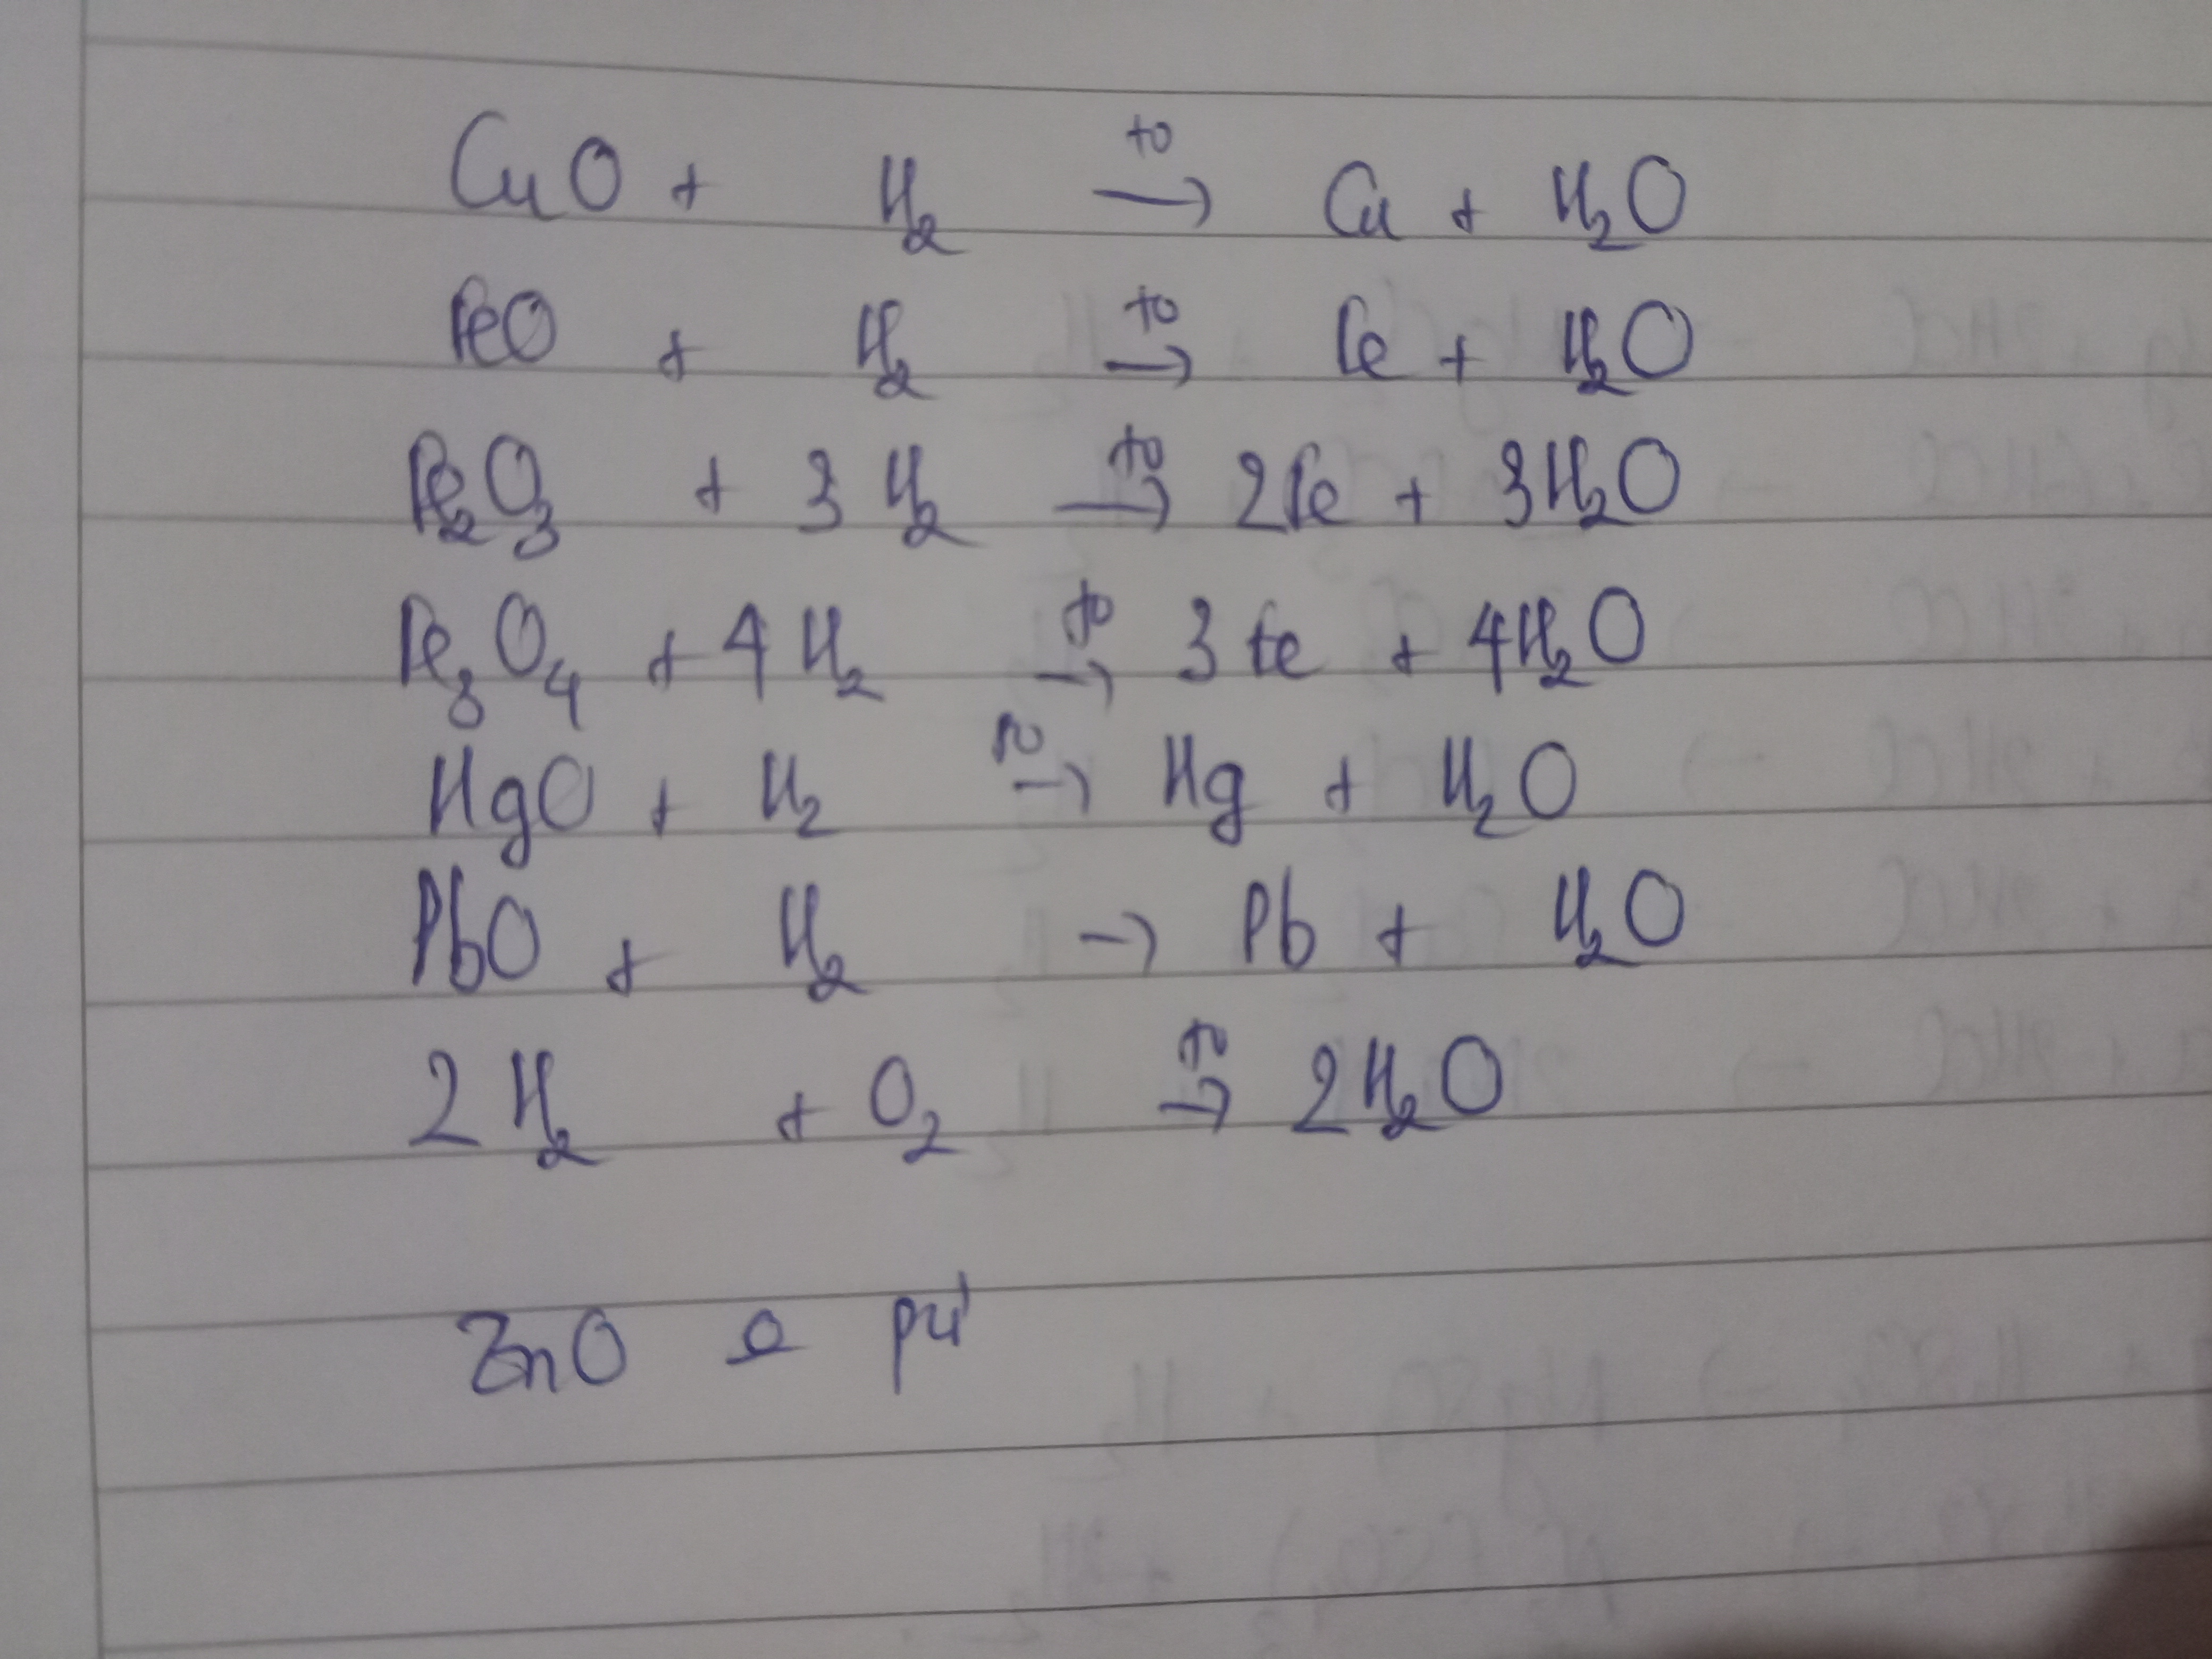 CuO + H₂ →(to) Cu + H₂O
FeO + H₂ →(to) Fe + H₂O
Fe₂O₃ + 3H₂ →(to) 2Fe + 3H₂O
Fe₃O₄ + 4H₂ →(to) 3Fe + 4H₂O
HgO + H₂ →(to) Hg + H₂O
PbO + H₂ → Pb + H₂O
2H₂ + O₂ →(to) 2H₂O
ZnO o pứ